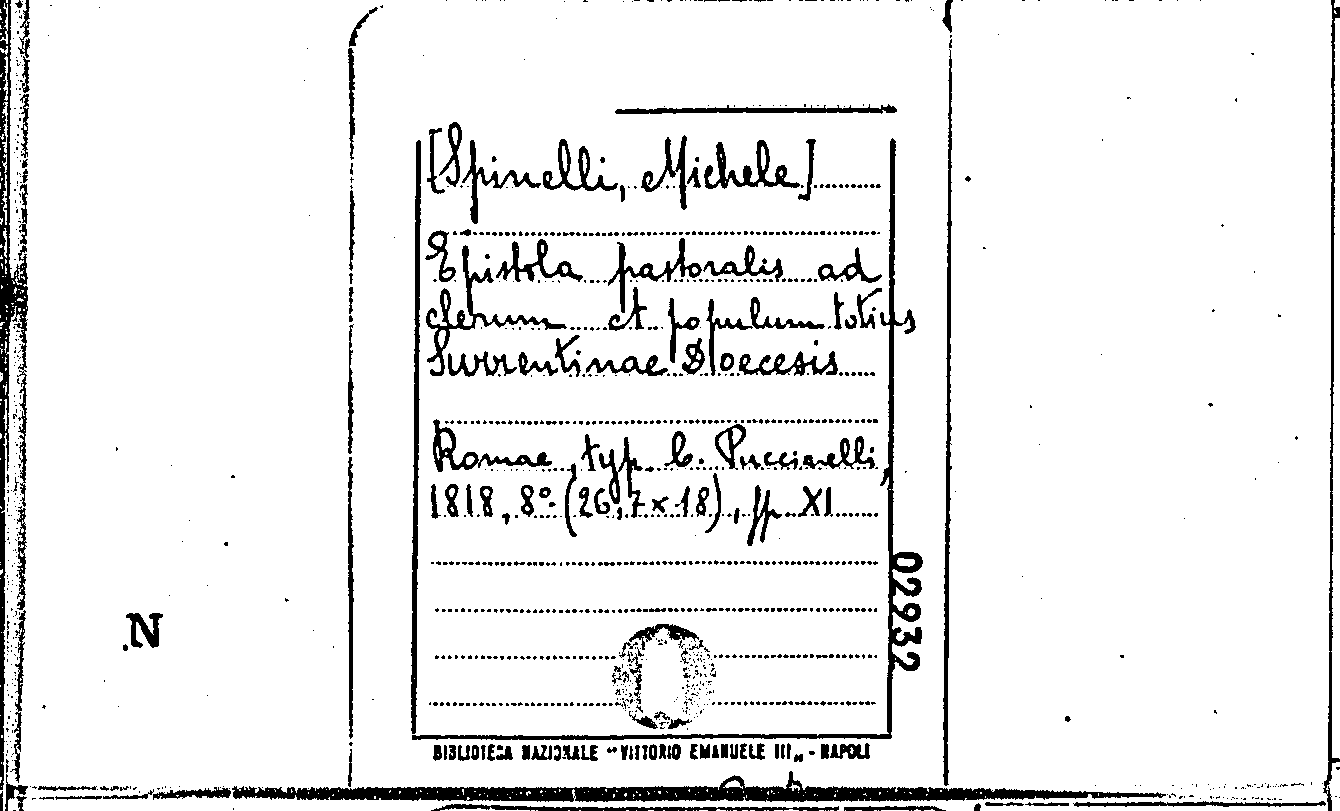 [Spinelli, Michele]
Epistola pastoralis ad
clerum et populum totius
Surrentinae Dioecesis
Romae, typ. C. Puccinelli,
1818, 8° (26,7 x 18), pp. XI
02932
N
BIBLIOTECA NAZIONALE "VITTORIO EMANUELE III„ - NAPOLI